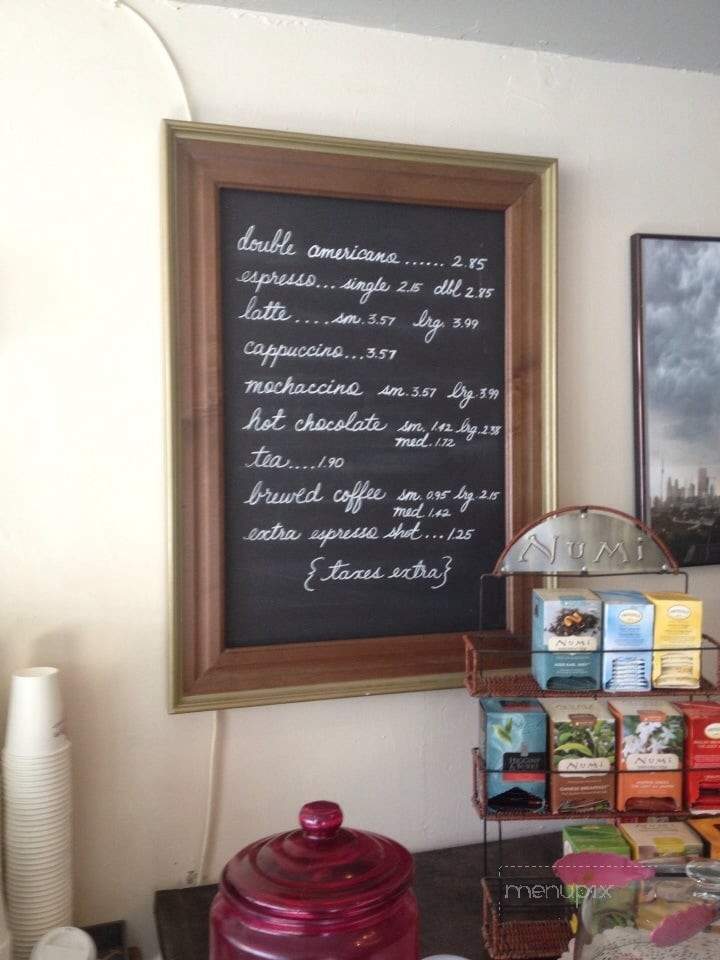 double americano ...... 2.85
espresso... single 2.15 dbl 2.85
latte .... sm. 3.57 lrg. 3.99
cappuccino...3.57
mochaccino sm. 3.57 lrg. 3.99
hot chocolate sm. 1.42 lrg. 2.38
med. 1.72
tea....1.90
brewed coffee sm. 0.95 lrg. 2.15
med 1.42
extra espresso shot ... 1.25
{taxes extra}
NUMI
NUMI
NUMI
NUMI
menupix